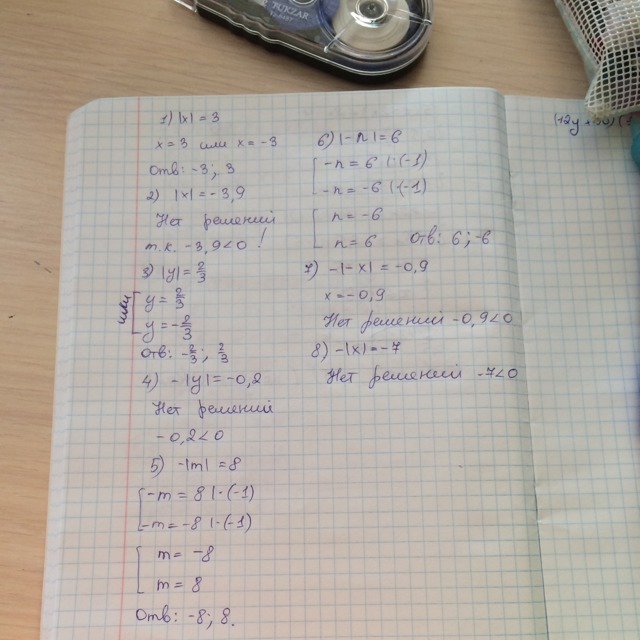 JUKZAR
1) |x| = 3
x = 3 или x = -3
Отв: -3; 3
2) |x| = -3,9
Нет решений
т.к. -3,9<0 !
3) |y| = 2/3
или
y = 2/3
y = -2/3
Отв: -2/3; 2/3
4) -|y| = -0,2
Нет решений
-0,2<0
5) -|m| = 8
-m = 8 |·(-1)
-m = -8 |·(-1)
m = -8
m = 8
Отв: -8; 8.
6) |-n| = 6
-n = 6 |·(-1)
-n = -6 |·(-1)
n = -6
n = 6 Отв: 6; -6
7) -|-x| = -0,9
x = -0,9
Нет решений -0,9<0
8) -|x| = -7
Нет решений -7<0